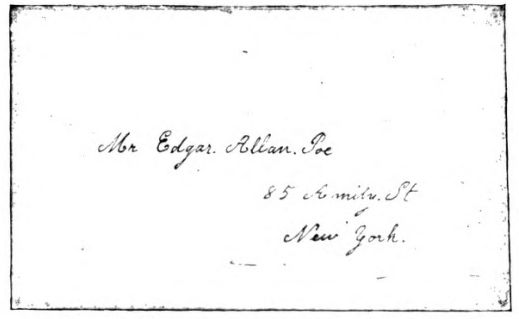 Mr Edgar. Allan. Poe
85 Amity. St
New York.